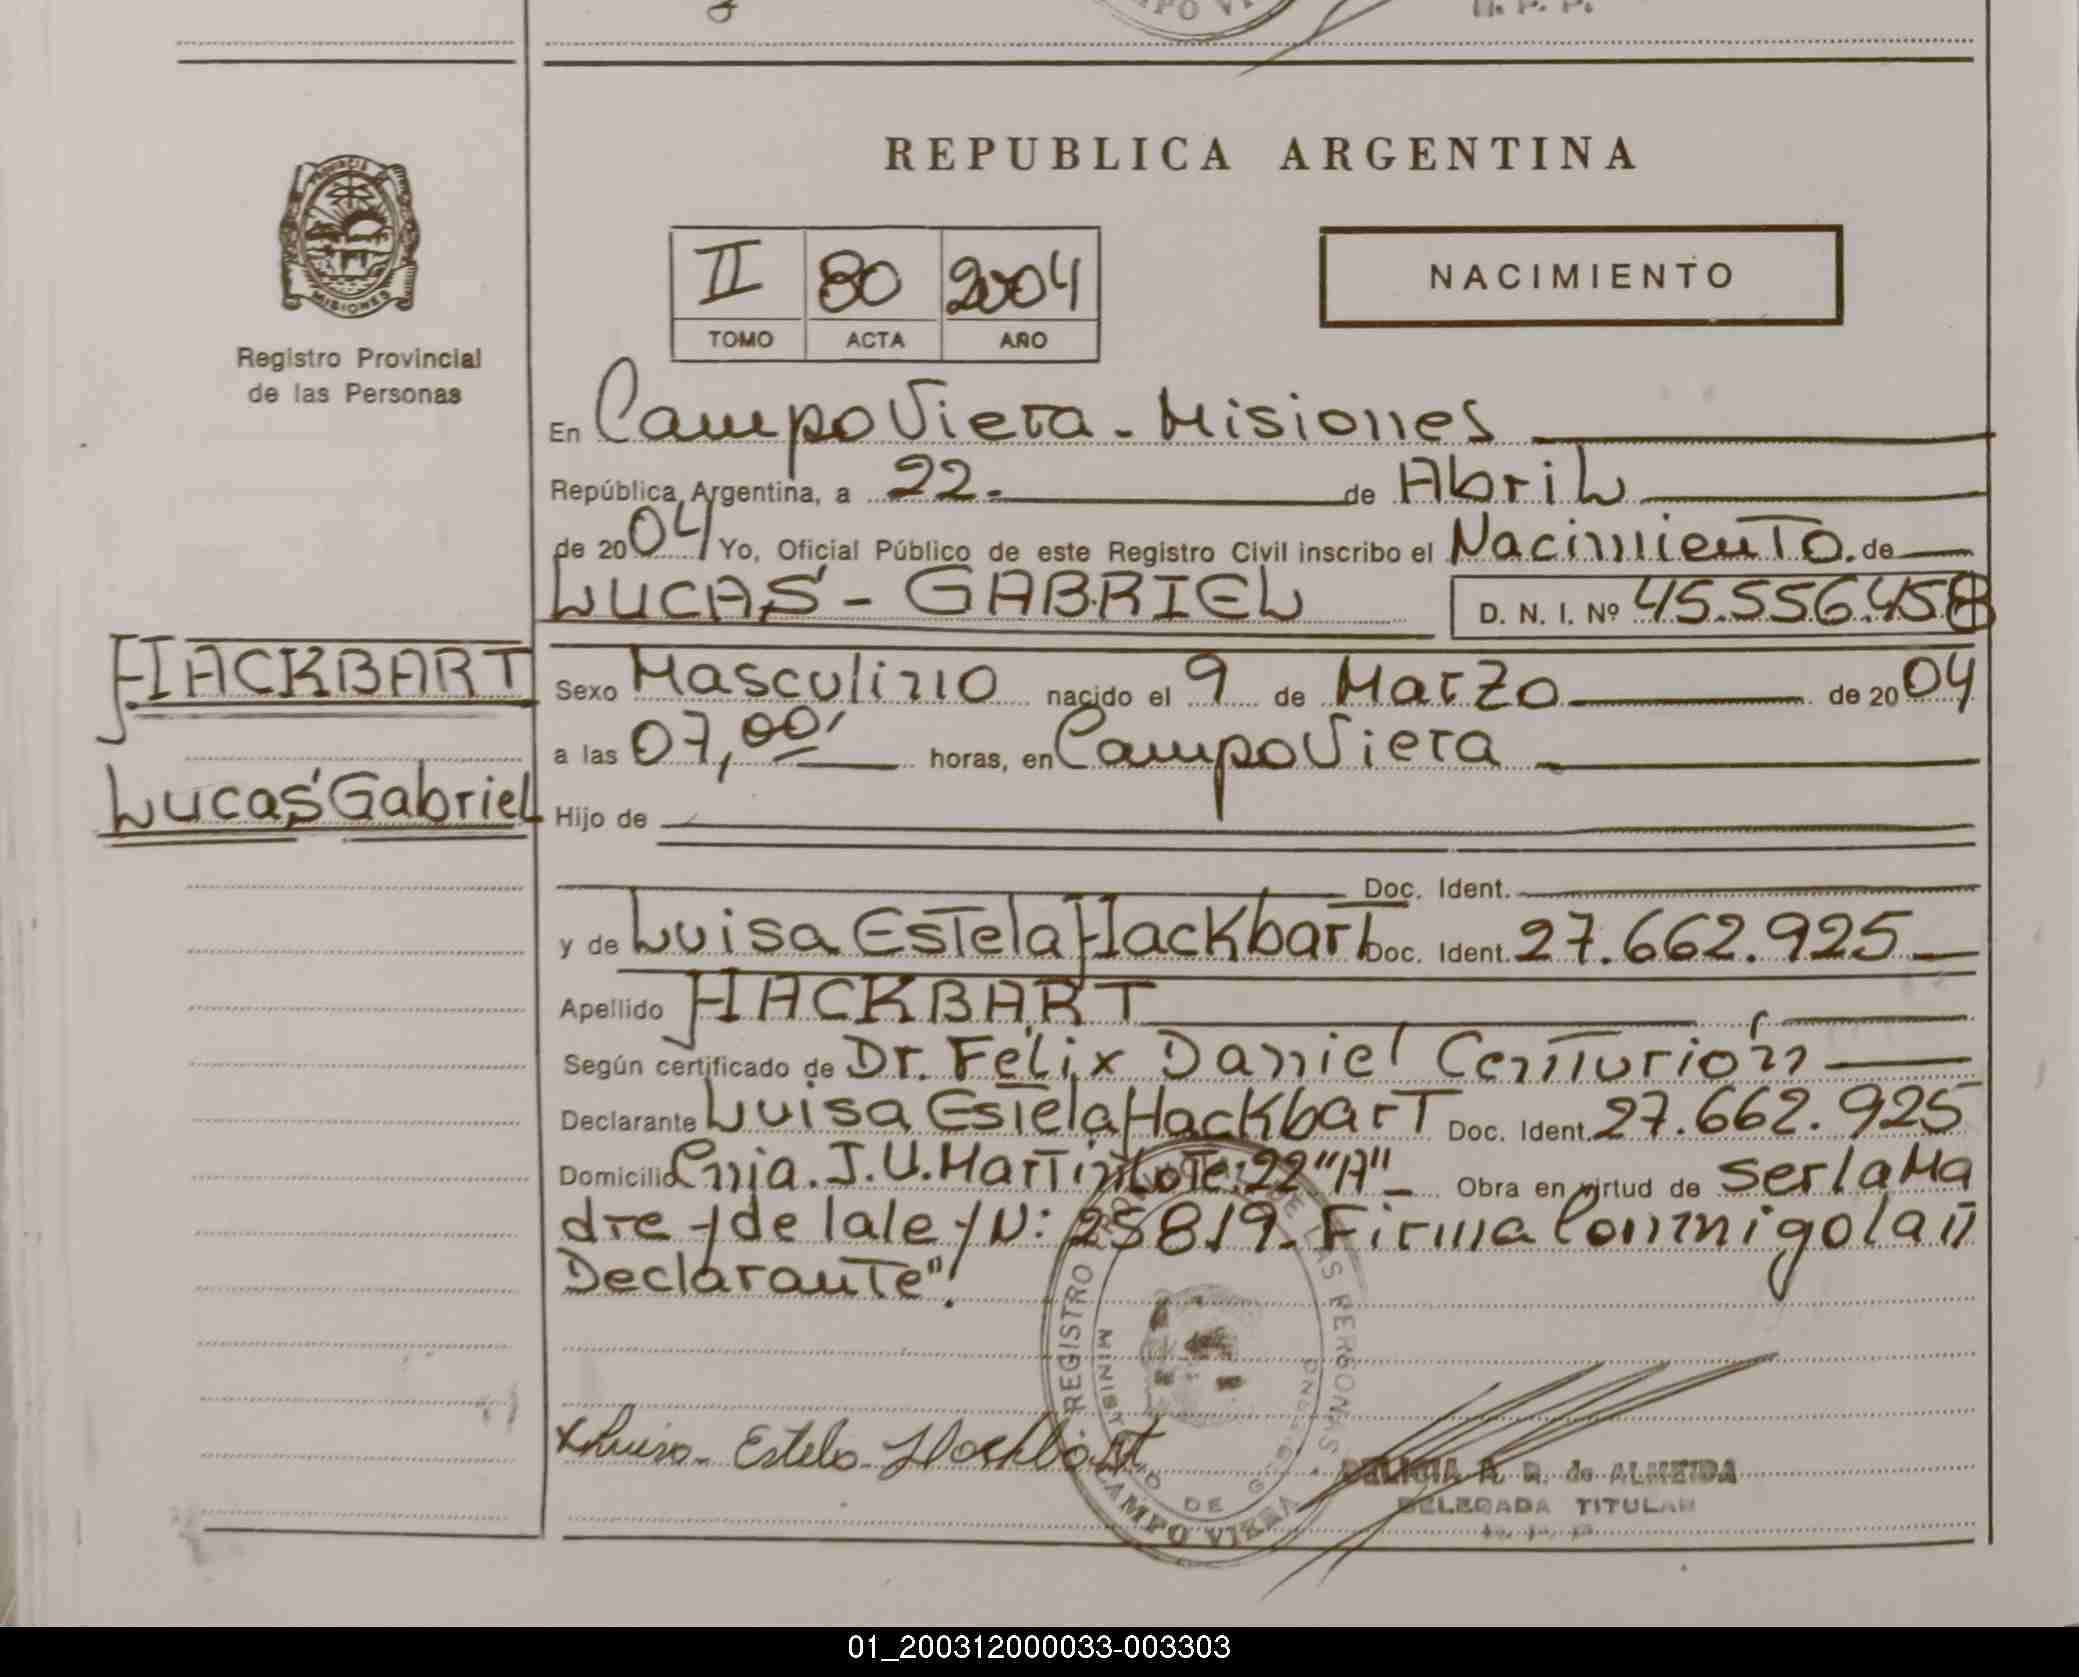 REPUBLICA ARGENTINA
PROVINCIA DE
MISIONES
Registro Provincial
de las Personas
II 80 2004
TOMO ACTA AÑO
NACIMIENTO
En Campo Viera - Misiones
República Argentina, a 22- de Abril
de 2004 Yo, Oficial Público de este Registro Civil inscribo el Nacimiento. de
LUCAS - GABRIEL D. N. I. Nº 45.556.458
HACKBART
Lucas Gabriel
Sexo Masculino nacido el 9 de Marzo de 2004
a las 07,00' horas, en Campo Viera
Hijo de
Doc. Ident.
y de Luisa Estela Hackbart Doc. Ident. 27.662.925
Apellido HACKBART
Según certificado de Dr. Félix Daniel Centurión
Declarante Luisa Estela Hackbart Doc. Ident. 27.662.925
Domicilio Cnia. J.U. Martin Lote: 22 "A" - Obra en virtud de ser la Ma
dre y de la ley N: 25819. Firma Conmigo la "
Declarante".
REGISTRO DE LAS PERSONAS
CAMPO VIERA
Luisa Estela Hackbart
DELICIA R. de ALMEIDA
DELEGADA TITULAR
01_200312000033-003303